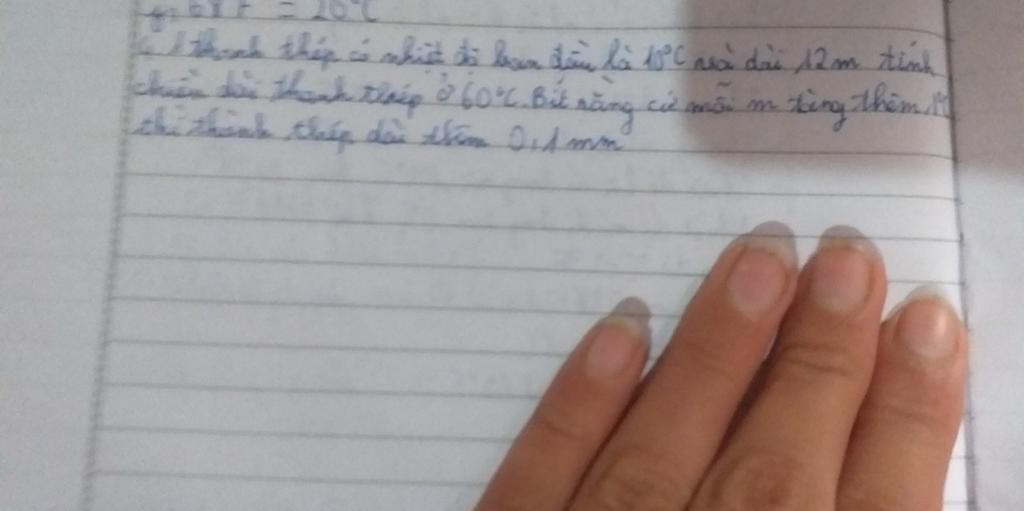 68°F = 20°C
C. 1 thanh thép có nhiệt độ ban đầu là 10°C và dài 12m tính
chiều dài thanh thép ở 60°C. Biết rằng cứ mỗi m tăng thêm 1°C
thì thanh thép dài thêm 0,1 mm